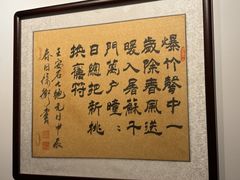 爆竹聲中一
歲除春風送
暖入屠蘇千
門萬戶曈〻
日總把新桃
換舊符
王安石七絕元日甲辰
春日書